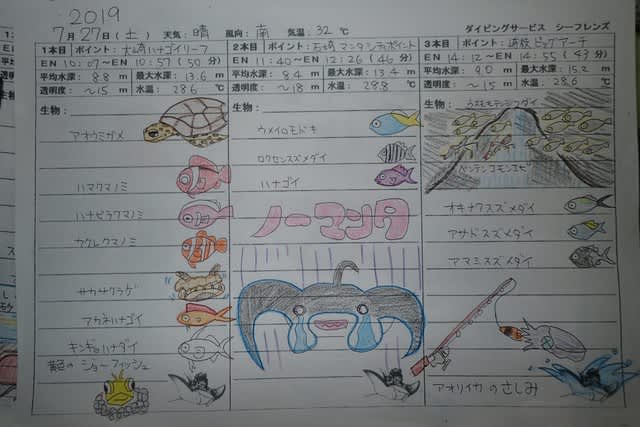 2019
7月27日(土) 天気:晴 風向:南 気温:32℃ ダイビングサービス シーフレンズ
1本目 ポイント:大崎ハナゴイリーフ
EN 10:07〜EN 10:57(50分)
平均水深:8.8m 最大水深:13.6m
透明度:〜15m 水温:28.6℃
生物:
アオウミガメ
ハマクマノミ
ハナビラクマノミ
カクレクマノミ
サカサクラゲ
アカネハナゴイ
キンギョハナダイ
黄色のジョーフィッシュ
2本目 ポイント:石崎マンタシティポイント
EN 11:40〜EN 12:26(46分)
平均水深:8.4m 最大水深:13.4m
透明度:〜18m 水温:28.8℃
生物:
ウメイロモドキ
ロクセンスズメダイ
ハナゴイ
ノーマンタ
3本目 ポイント:崎枝ビッグアーチ
EN 14:12〜EN 14:55(43分)
平均水深:9.0m 最大水深:15.2m
透明度:〜15m 水温:28.6℃
生物:
ウスモモテンジクダイ
ベンテンコモンエビ
オキナワスズメダイ
アサドスズメダイ
アマミスズメダイ
アオリイカのさしみ